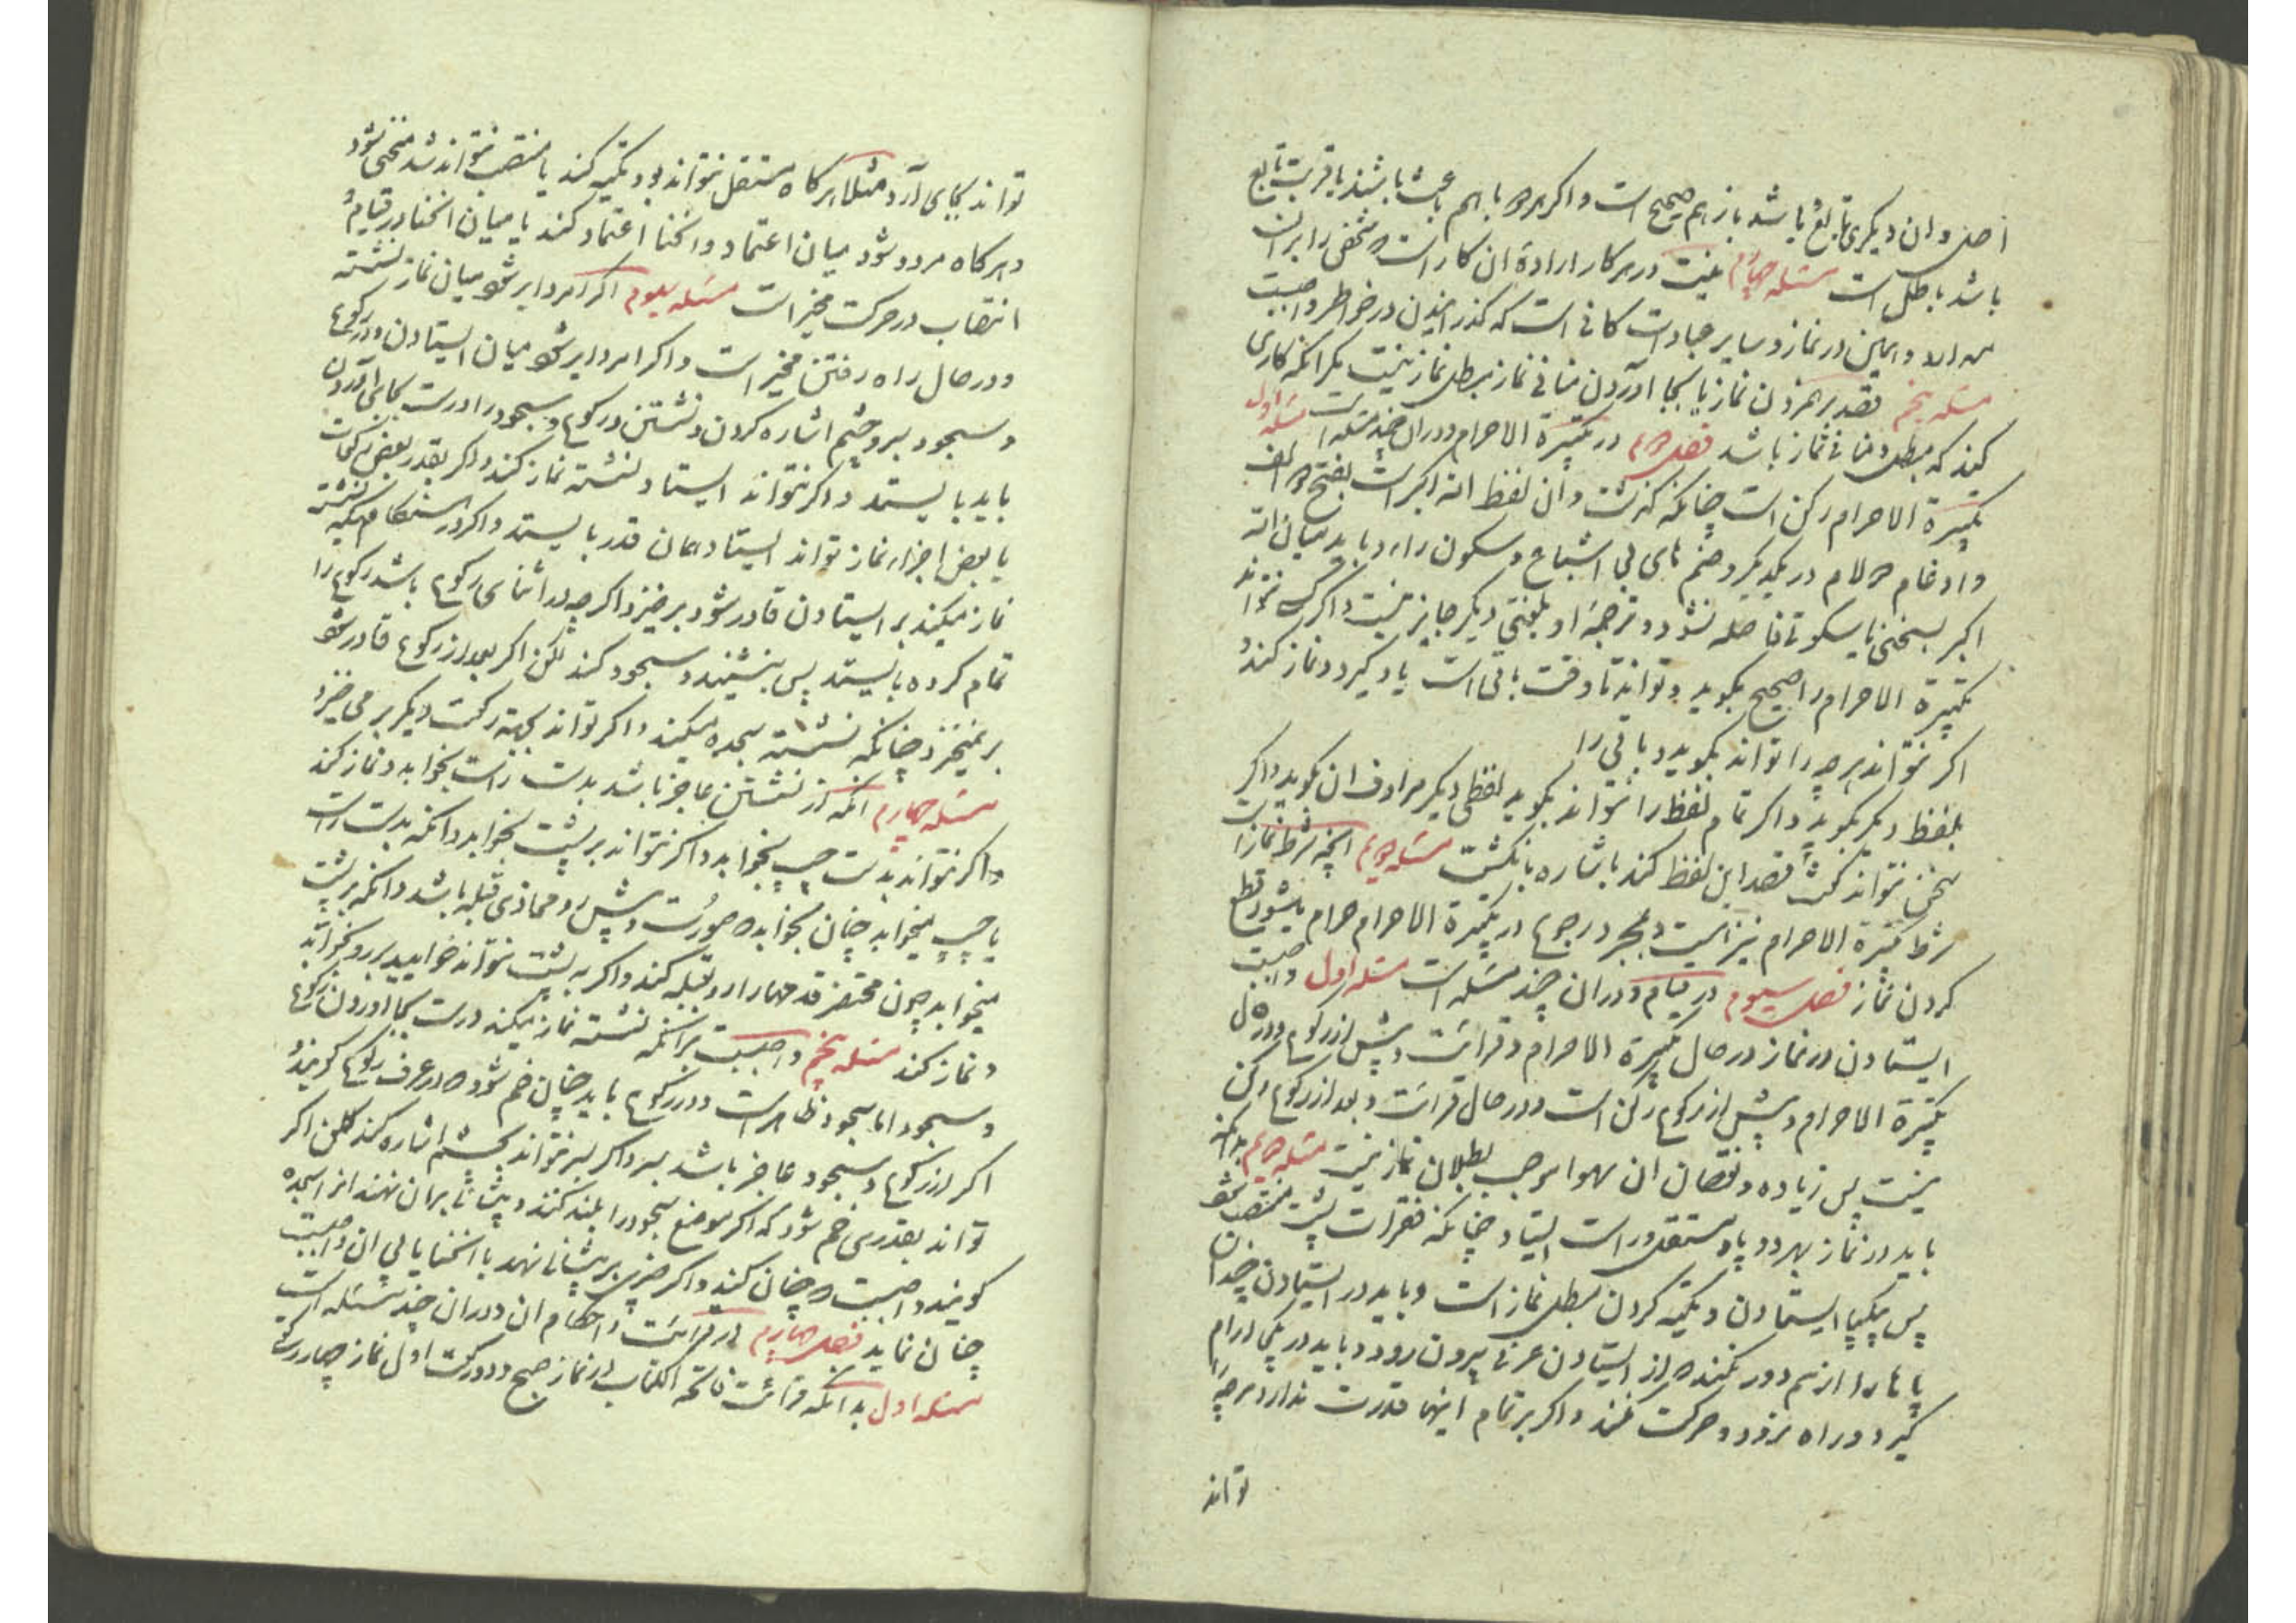 اصل و ان دیکری تابع باشد باز هم صحیح است و اکر هر دو با هم باعث باشند یا قربت تابع
باشد باطل است مسئله چهارم نیت در هر کار ارادهٔ ان کار است که شخص را بران
میدارد و همین در نماز و سایر عبادات کافی است که کذرانیدن در خواطر واجب نیست
مسئله پنجم قصد بر هم زدن نماز یا بجا آوردن منافی نماز مبطل نماز نیست مکر انکه کاری
کند که مبطل و منافی نماز باشد فصل دوم در تکبیرة الاحرام و دران چند مسئله است مسئله اول
تکبیرة الاحرام رکن است چنانکه کذشت و ان لفظ الله اکبر است بفتح دو الف
و ادغام دو لام در یکدیکر و ضم های بی اشباع و سکون را و باید میان الله
اکبر بسخنی یا سکوتی فاصله نشود و ترجمهٔ او بلغتی دیکر جایز نیست و اکر کسی نتواند
تکبیرة الاحرام را صحیح بکوید و تواند تا وقت باقی است یاد کیرد و نماز کند و
اکر نتواند هر چه را تواند بکوید و باقی را
بلفظ دیکر بکوید و اکر تمام لفظ را نتواند بکوید لفظی دیکر مرادف ان بکوید و اکر
سخن نتواند کفت قصد این لفظ کند با اشاره بانکشت مسئله دویم انچه شرط نماز است
شرط تکبیرة الاحرام نیز است و بمجرد رجوع در تکبیرة الاحرام حرام میشود قطع
کردن نماز فصل سیوم در قیام و دران چند مسئله است مسئله اول واجب است
ایستادن در نماز در حال تکبیرة الاحرام و قرائت و پیش از رکوع و در حال
تکبیرة الاحرام و پیش از رکوع رکن است و در حال قرائت و بعد از رکوع رکن
نیست پس زیاده و نقصان ان سهوا موجب بطلان نماز نیست مسئله دویم بدانکه
باید در نماز بهر دو پا و مستقل و راست ایستاد چنانکه فقرات پشت منتصب شود
پس بیکپا ایستادن و تکیه کردن مبطل نماز است و باید در ایستادن چندان
پاها را از هم دور نکند که از ایستادن عرفی بیرون رود و باید در یکجا ارام
کیرد و راه نرود و حرکت نکند و اکر بر تمام اینها قدرت ندارد هر چه را
تواند
تواند بجای آرد مثلا هر کاه مستقل نتواند بود تکیه کند یا منتصب نتواند شد منحنی شود
و هر کاه مردد شود میان اعتماد و انحنا اعتماد کند یا میان انحنا در قیام و
انتصاب در حرکت مخیر است مسئله سیوم اکر امر دایر شود میان نماز نشسته
و در حال راه رفتن مخیر است و اکر امر دایر شود میان ایستادن و در رکوع
و سجود بسر و چشم اشاره کردن و نشستن و رکوع و سجود را درست بجای آوردن
باید بایستد و اکر نتواند ایستاد نشسته نماز کند و اکر بقدر بعض رکعات
یا بعض اجزاء نماز تواند ایستاد همان قدر بایستد و اکر در هنکامیکه نشسته
نماز میکند بر ایستادن قادر شود برخیزد اکر چه در اثنای رکوع باشد رکوع را
تمام کرده بایستد پس بنشیند و سجود کند لکن اکر بعد از رکوع قادر شود
برنمیخیزد چنانکه نشسته سجده میکند و اکر تواند بجهة رکعت دیکر بر می خیزد
مسئله چهارم انکه از نشستن عاجز باشد بدست راست بخوابد و نماز کند
و اکر نتواند بدست چپ بخوابد و اکر نتواند بر پشت بخوابد و انکه بدست راست
یا چپ میخوابد چنان بخوابد که صورت و پیش رو محاذی قبله باشد و انکه بر پشت
میخوابد چون محتضر قدمها را رو بقبله کند و اکر به پشت نتواند خوابید بر رو بخوابد
و نماز کند مسئله پنجم واجبست بر انکه نشسته نماز میکند درست بجا اوردن رکوع
و سجود اما سجود ظاهر است و در رکوع باید چنان خم شود که در عرف رکوع کویند و
اکر از رکوع و سجود عاجز باشد بسر و اکر بسر نتواند بچشم اشاره کند لکن اکر
تواند بقدری خم شود که اکر موضع سجود را بلند کنند و پیشانی بران نهند انرا سجده
کویند واجبست که چنان کند و اکر چیزی بر پیشانی نهد با انحنا یا بی ان واجبست
چنان نماید فصل چهارم در قرائت و احکام ان و دران چند مسئله است
مسئله اول بدانکه قرائت فاتحة الکتاب در نماز صبح و دو رکعت اول نماز چهار رکعتی